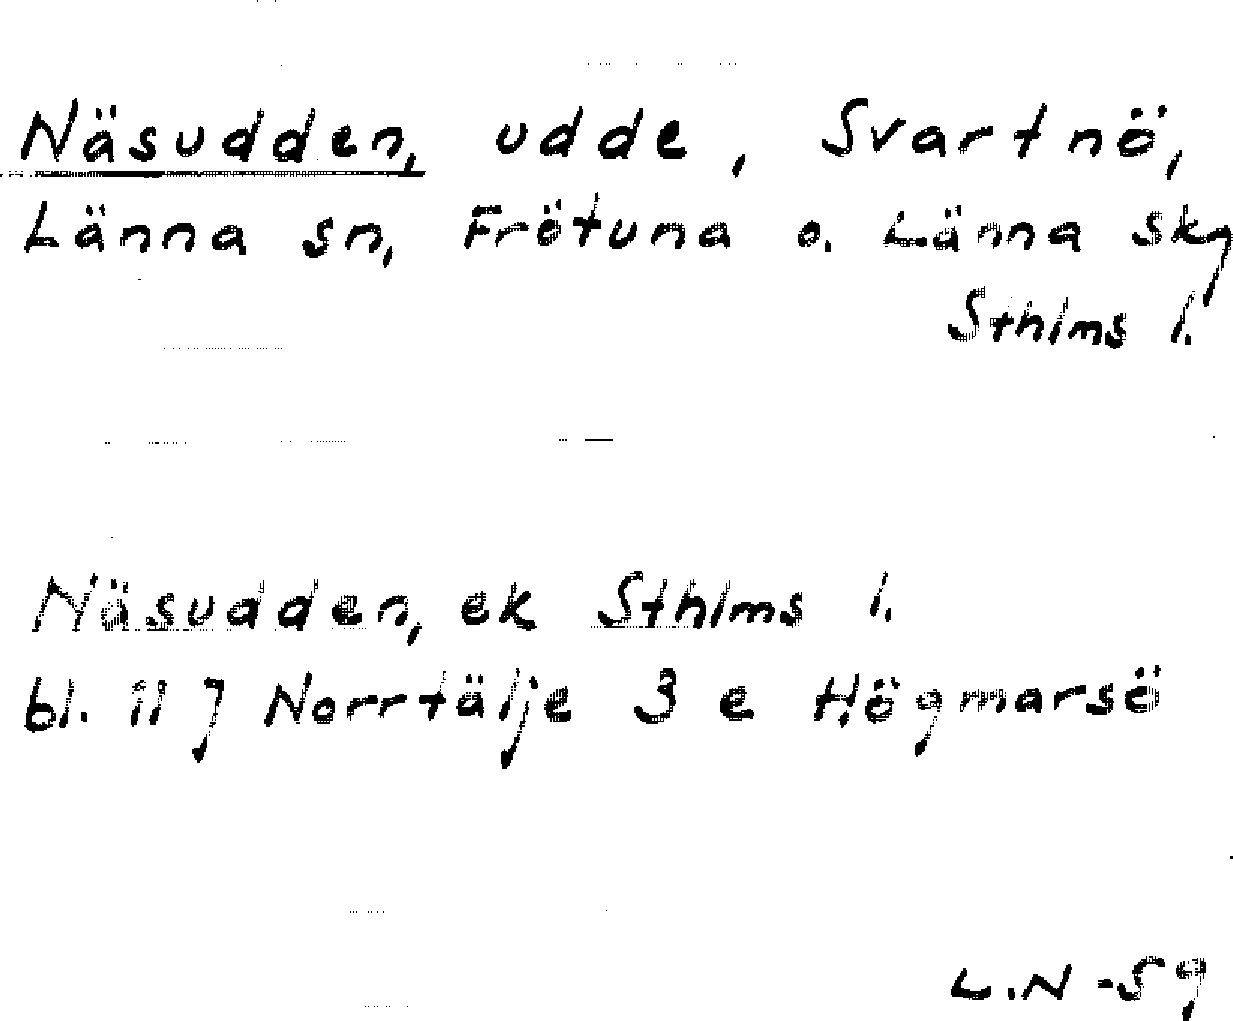 Näsudden, udde, Svartnö,
Länna sn, Frötuna o. Länna skg
Sthlms l.
Näsudden, ek Sthlms l.
bl. 11 J Norrtälje 3 e Högmarsö
L.N -59